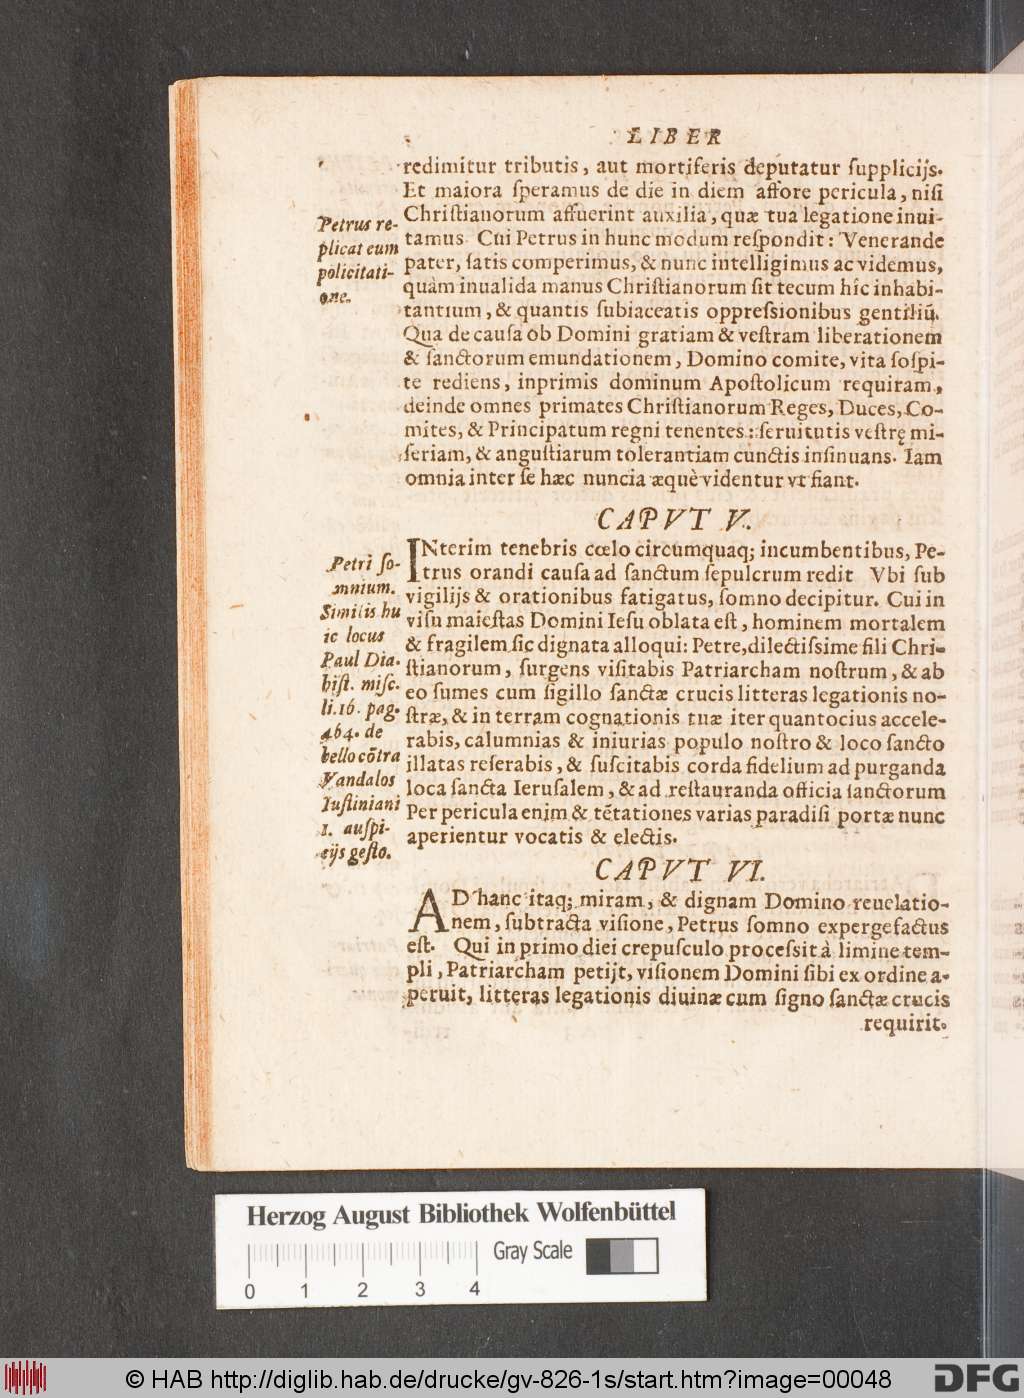 LIBER
redimitur tributis, aut mortiferis deputatur ſupplicijs.
Et maiora ſperamus de die in diem affore pericula, niſi
Chriſtianorum affuerint auxilia, quæ tua legatione inui-
tamus Cui Petrus in hunc modum reſpondit: Venerande
pater, ſatis comperimus, & nunc intelligimus ac videmus,
quàm inualida manus Chriſtianorum ſit tecum hîc inhabi-
tantium, & quantis ſubiaceatis oppreſsionibus gentiliū.
Qua de cauſa ob Domini gratiam & veſtram liberationem
& ſanctorum emundationem, Domino comite, vita ſoſpi-
te rediens, inprimis dominum Apoſtolicum requiram,
deinde omnes primates Chriſtianorum Reges, Duces, Co-
mites, & Principatum regni tenentes: ſeruitutis veſtrę mi-
ſeriam, & anguſtiarum tolerantiam cunctis inſinuans. Iam
omnia inter ſe hæc nuncia æquè videntur vt fiant.
Petrus re-
plicat eum
policitati-
one.
CAPVT V.
INterim tenebris cœlo circumquaq; incumbentibus, Pe-
trus orandi cauſa ad ſanctum ſepulcrum redit Vbi ſub
vigilijs & orationibus fatigatus, ſomno decipitur. Cui in
viſu maieſtas Domini Ieſu oblata eſt, hominem mortalem
& fragilem ſic dignata alloqui: Petre, dilectiſsime fili Chri-
ſtianorum, ſurgens viſitabis Patriarcham noſtrum, & ab
eo ſumes cum ſigillo ſanctæ crucis litteras legationis no-
ſtræ, & in terram cognationis tuæ iter quantocius accele-
rabis, calumnias & iniurias populo noſtro & loco ſancto
illatas reſerabis, & ſuſcitabis corda fidelium ad purganda
loca ſancta Ieruſalem, & ad reſtauranda officia ſanctorum
Per pericula enim & tētationes varias paradiſi portæ nunc
aperientur vocatis & electis.
Petri ſo-
mnium.
Similis hu
ic locus
Paul Dia.
hiſt. miſc.
li.16. pag.
464. de
bello cōtra
Vandalos
Iuſtiniani
I. auſpi-
cijs geſto.
CAPVT VI.
AD hanc itaq; miram, & dignam Domino reuelatio-
nem, ſubtracta viſione, Petrus ſomno expergefactus
eſt. Qui in primo diei crepuſculo proceſsit à limine tem-
pli, Patriarcham petijt, viſionem Domini ſibi ex ordine a-
peruit, litteras legationis diuinæ cum ſigno ſanctæ crucis
requirit.
Herzog August Bibliothek Wolfenbüttel
Gray Scale
0 1 2 3 4
© HAB http://diglib.hab.de/drucke/gv-826-1s/start.htm?image=00048
DFG